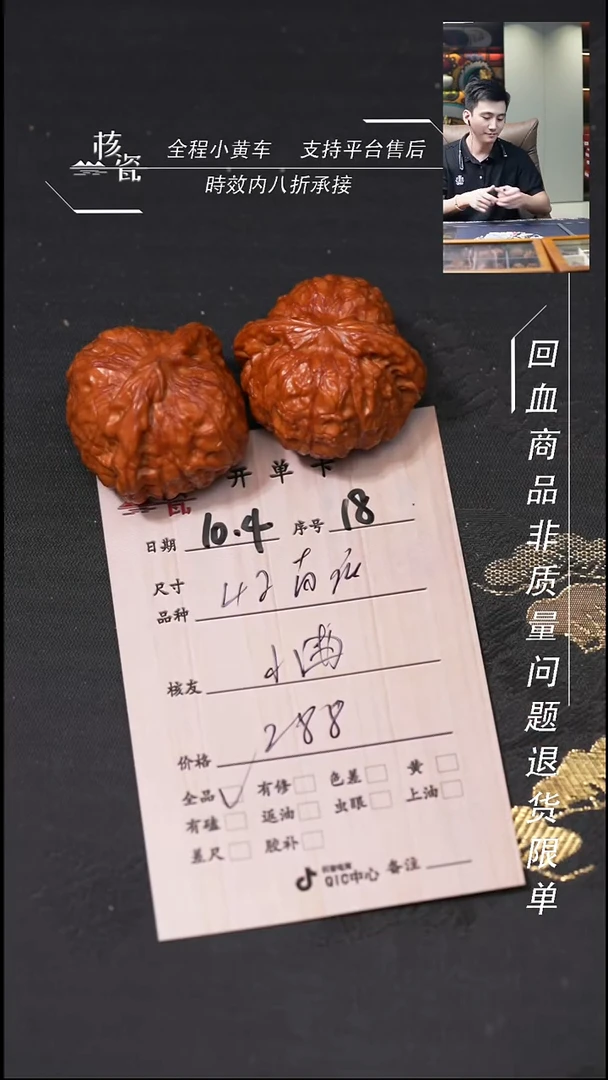 核瓷
全程小黄车 支持平台售后
時效内八折承接
回血商品非质量问题退货限单
开单卡
瓷
日期 10.4 序号 18
尺寸
品种 42
核友 小
价格 288
全品 有修 色差 黄
有磕 返油 虫眼 上油
差尺 胶补
QIC中心 备注